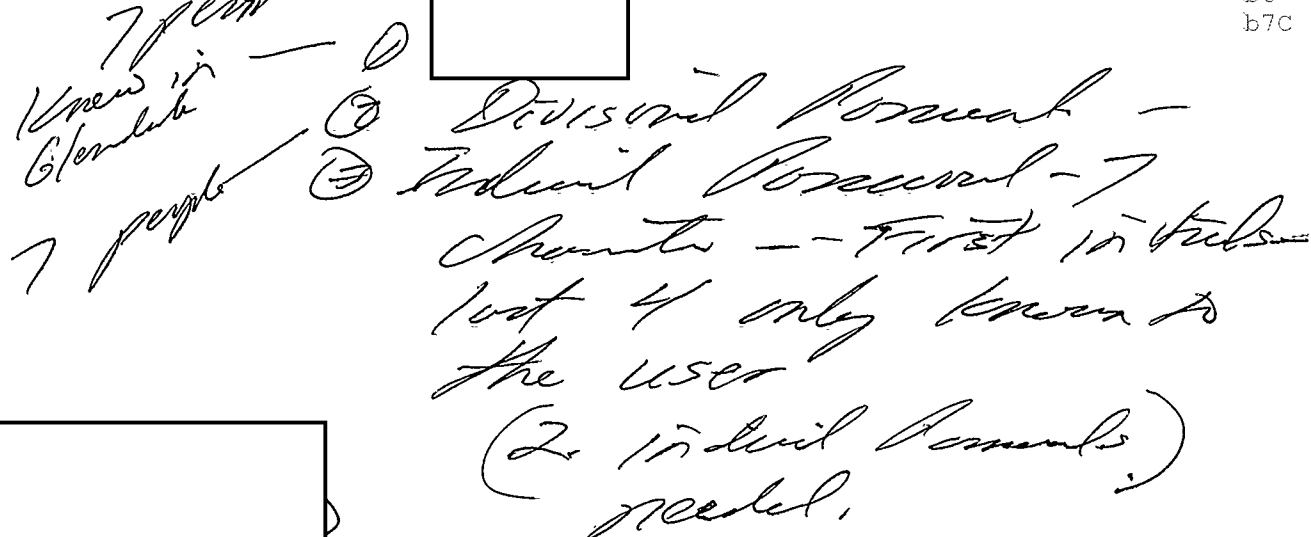 b7C
7 pe
Knew in — ①
Glendale
② Divisional Password -
7 people
③ Individ Password - 7
character -- First initials -
last 4 only known to
the user
(2 individ Passwords)
needed.